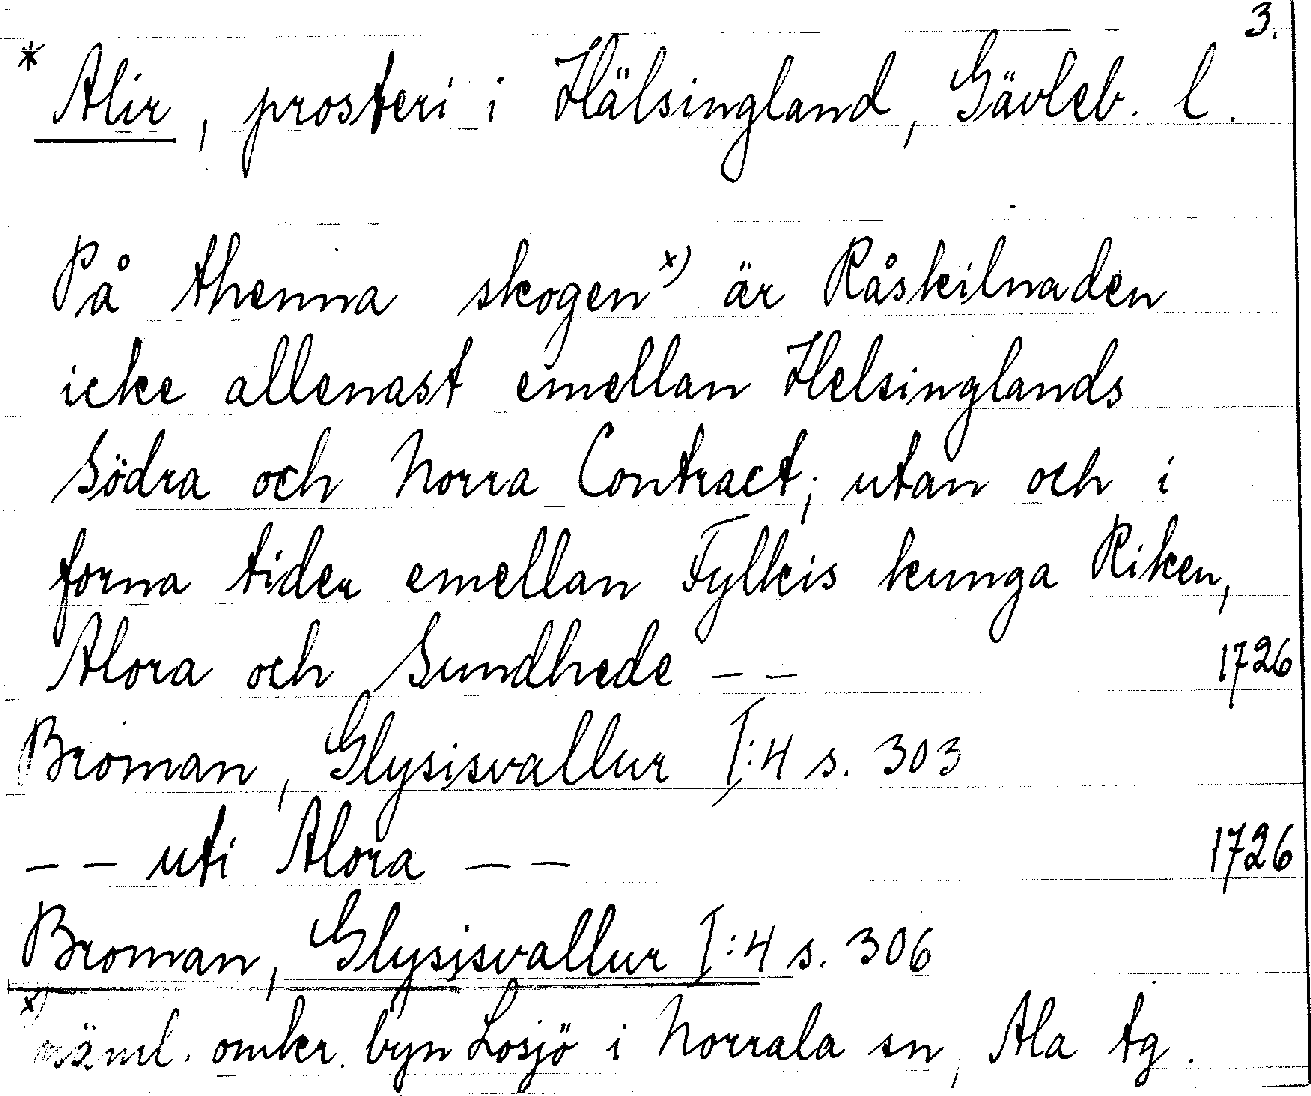 3.
* Alir, prosteri i Hälsingland, Gävleb. l.
På thenna skogen x) är Råskilnaden
icke allenast emellan Helsinglands
Södra och Norra Contract; utan och i
forna tider emellan Fylkis kunga Riken,
Alora och Sundhede – – 1726
Broman, Glysisvallur I:4 s. 303
– – uti Alora – – 1726
Broman, Glysisvallur I:4 s. 306
x) näml. omkr. byn Losjö i Norrala sn, Ala tg.